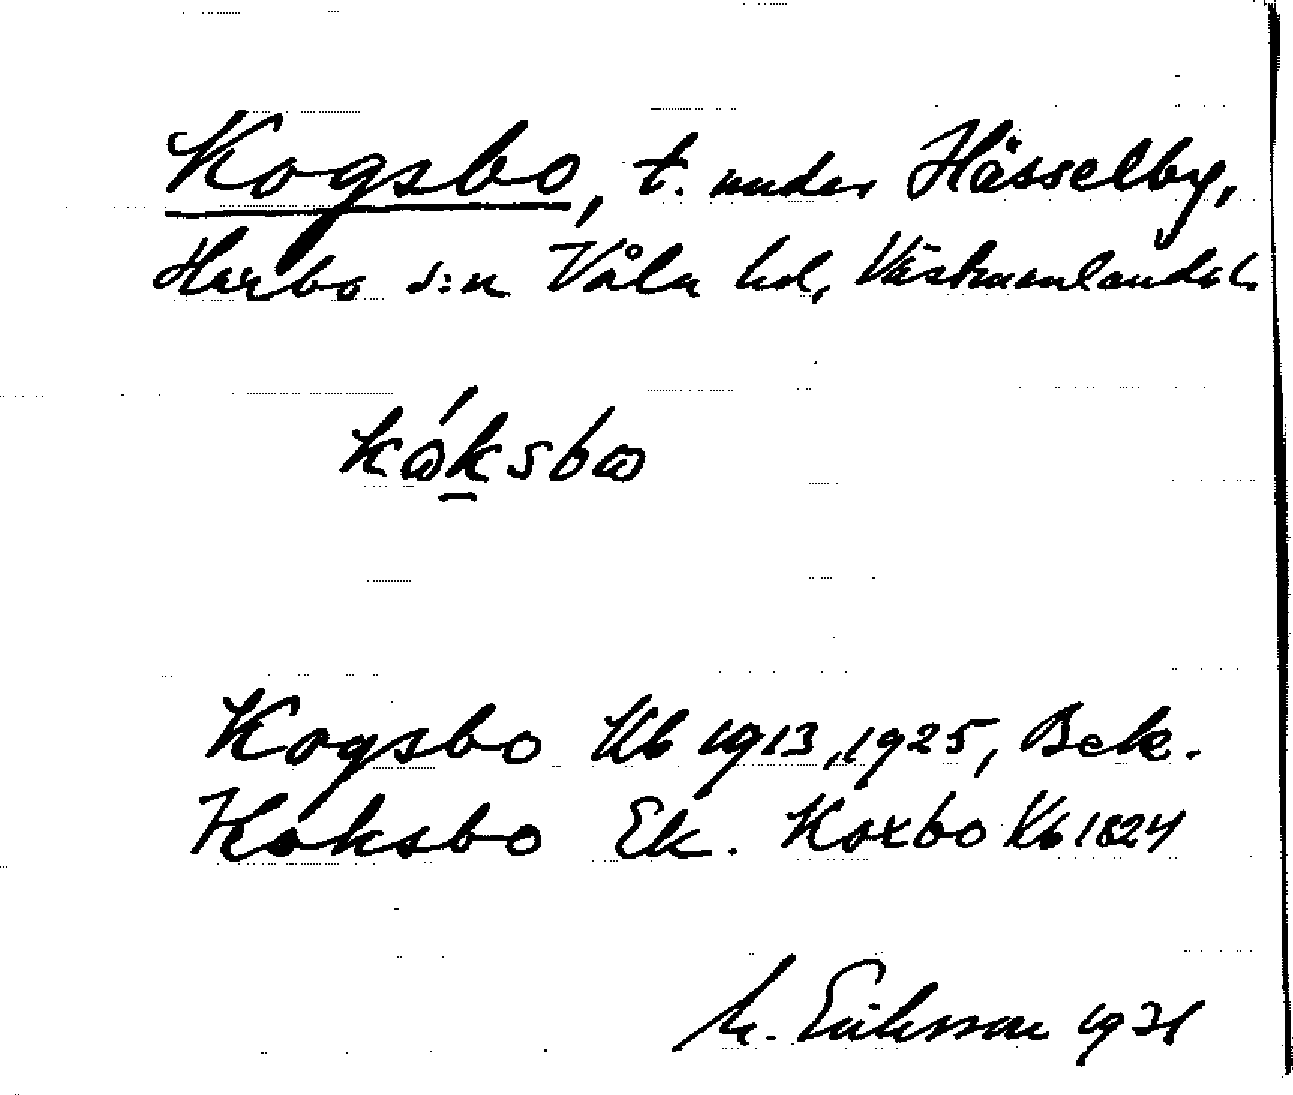 Kogsbo, t. under Hässelby,
Harbo s:n Våla hd, Västmanlands l.
kåksbω
Kogsbo Kb 1913, 1925, Bek.
Koksbo Ek. Koxbo Kb 1824
M. Eriksson 1931